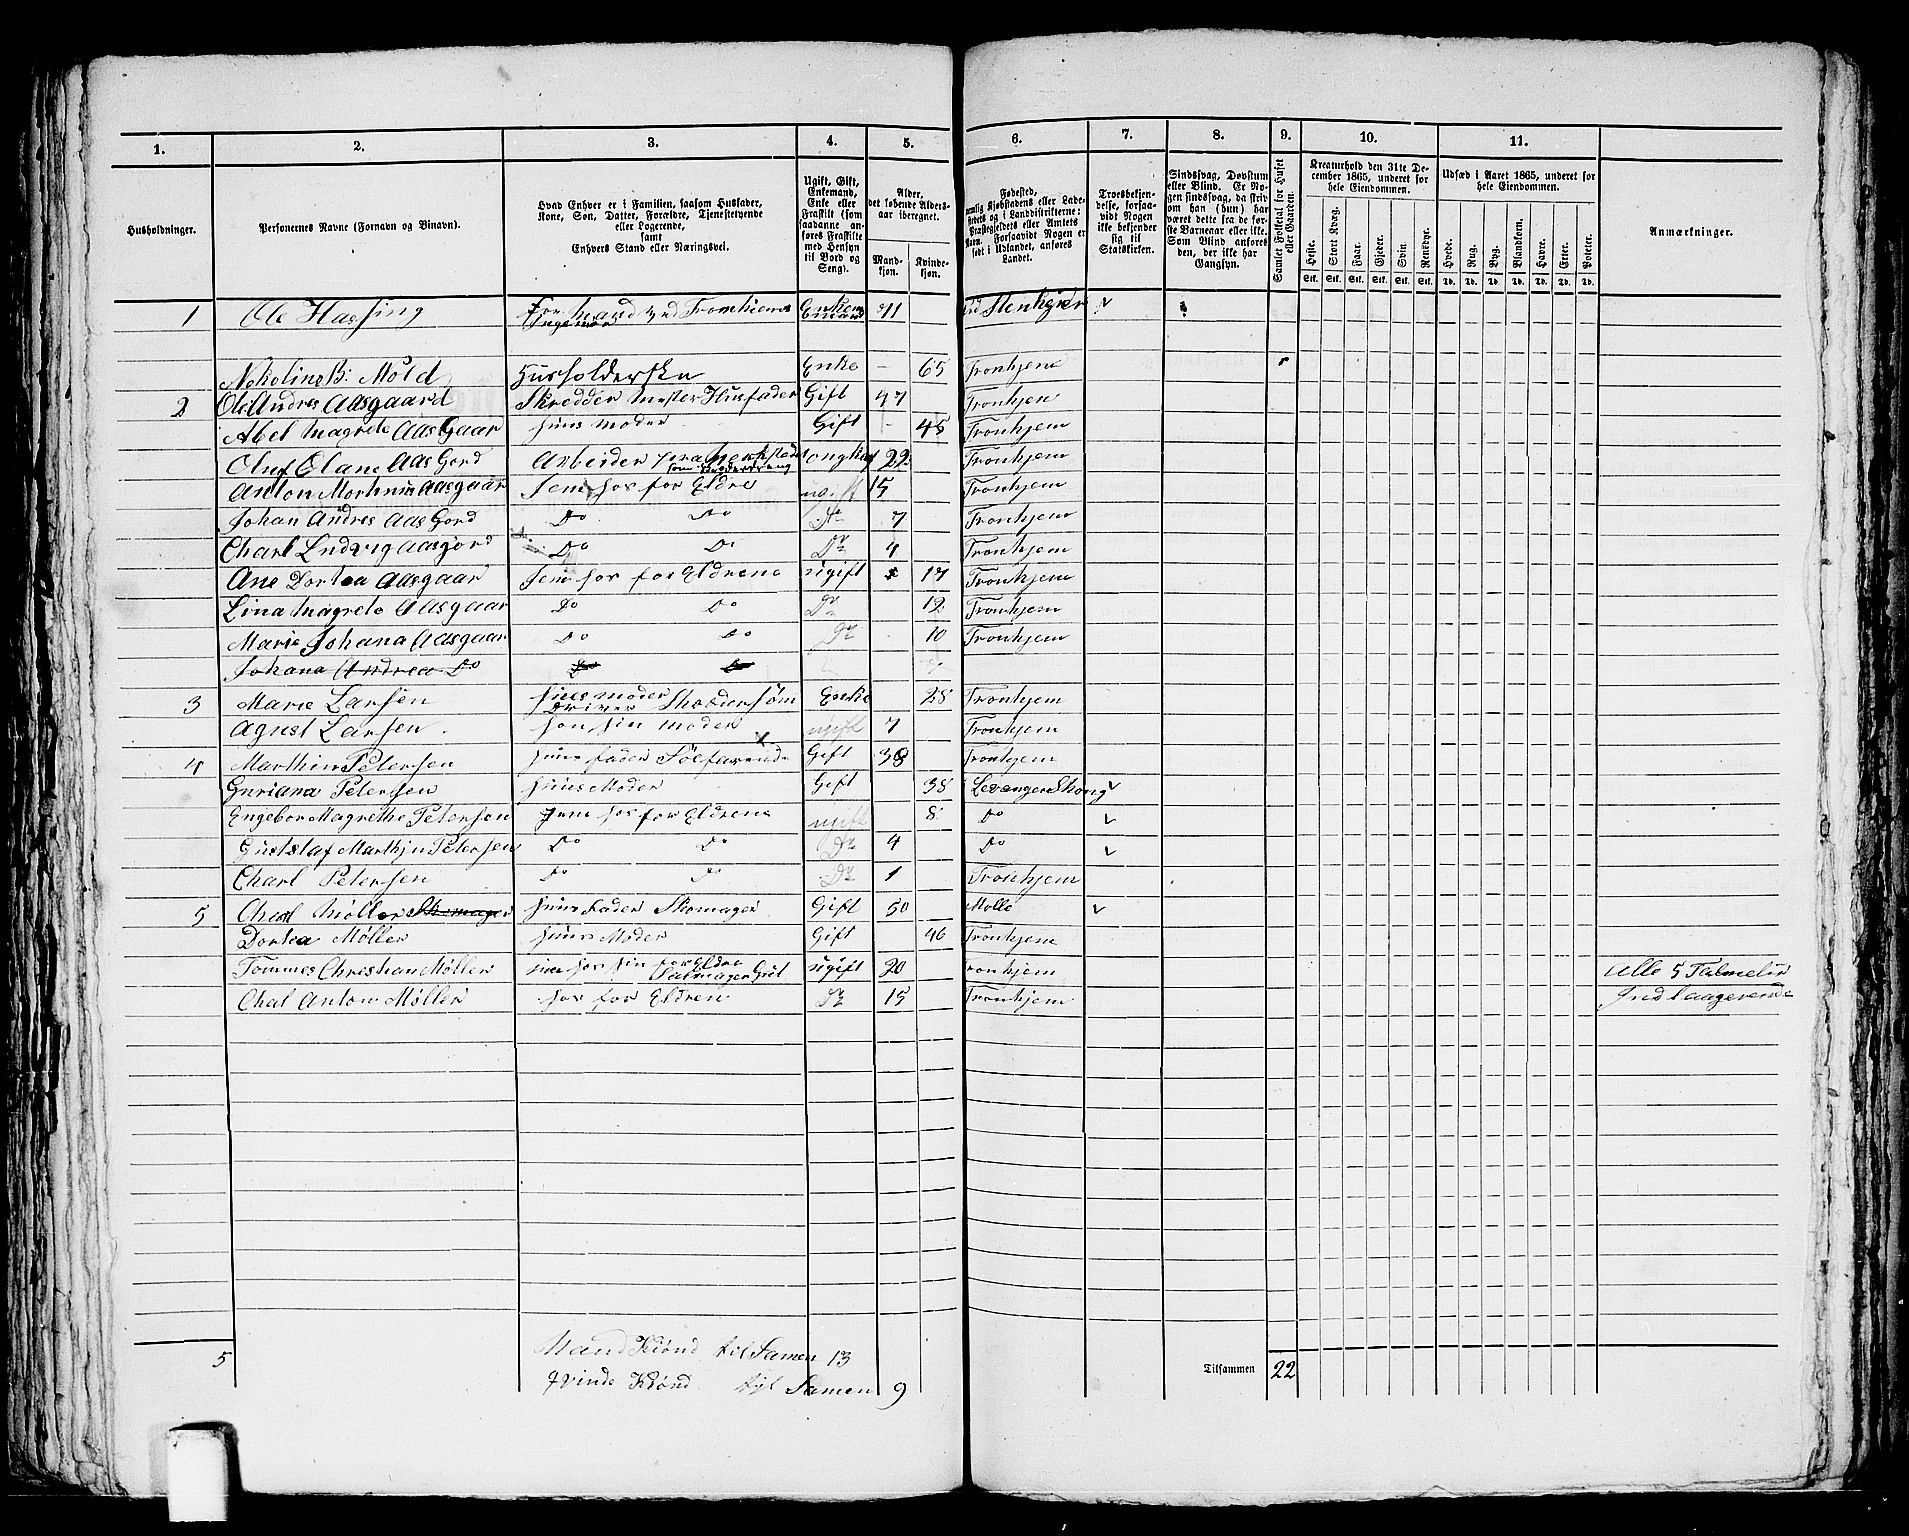 1. 2. 3. 4. 5. 6. 7. 8. 9. 10. 11.
Husholdninger.
Personernes Navne (Fornavn og Binavn).
Hvad Enhver er i Familien, saasom Husfader,
Kone, Søn, Datter, Forældre, Tjenestetyende
eller Logerende,
samt
Enhvers Stand eller Næringsvei.
Ugift, Gift,
Enkemand,
Enke eller
Fraskilt (som
saadanne an-
føres Fraskilte
med Hensyn
til Bord og
Seng).
Alder,
det løbende Alders-
aar iberegnet.
Mand-
kjøn.
Kvinde-
kjøn.
Fødested,
nemlig Kjøbstadens eller Lade-
stedets og i Landdistrikterne:
Præstegjeldets eller Amtets
Navn. Forsaavidt Nogen er
født i Udlandet, anføres
Landet.
Troesbekjen-
delse, forsaa-
vidt Nogen
ikke bekjender
sig til
Statskirken.
Sindssvag, Døvstum
eller Blind. Er No-
gen sindssvag, da skriv
om han (hun) har
været dette fra de før-
ste Barneaar eller ikke.
Som Blind anføres
den, der ikke har
Gangsyn.
Samlet Folketal for Huset
eller Gaarden.
Kreaturhold den 31te De-
cember 1865, underet for
hele Eiendommen.
Heste. Stort Kvæg. Faar. Gjeder. Svin. Rensdyr.
Stk. Stk. Stk. Stk. Stk. Stk.
Udsæd i Aaret 1865, underet for
hele Eiendommen.
Hvede. Rug. Byg. Blandkorn. Havre. Erter. Poteter.
Td. Td. Td. Td. Td. Td. Td.
Anmærkninger.
1 Ole Hassing Enkemand 71 Stenkjær
Husholderska Enke - 65 Tronhjem
2 Ole Andres Aasgaard Skredder Mester Husfader Gift 47 Tronhjem
Abel Magrete Aasgaar Huns Moder Gift 45 Tronhjem
Oluf Aasgord Arbeider 22 Tronhjem
Anton Aasgaar Jem hos for Eldre ugift 15 Tronhjem
Johan Andres Aasgord Do Do Do 7 Tronhjem
Charl Ludvig Aasgord Do Do Do 4 Tronhjem
Ane Dortea Aasgaar Jem hos for Eldrene ugift 17 Tronhjem
Lina Magrete Aasgaar Do Do Do 12 Tronhjem
Marie Johana Aasgaar Do Do Do 10 Tronhjem
Johana Andrea Do Do Do
3 Marie Larsen Huus Moder Driver Enke 28 Tronhjem
Agnst Larsen hos sin Moder ugift 7 Tronhjem
4 Marthin Petersen Huus fader Søefarende Gift 38 Tronhjem
Guriana Petersen Huus Moder Gift 38 Levanger Skong
Engebor Magrethe Petersen Jem hos for Eldrene ugift 8 Do
Guststaf Marthin Petersen Do Do Do 4 Do
Charl Petersen Do Do Do 1 Tronhjem
5 Charl Møller Skomager Huus Fader Skomager Gift 50 Molle
Dortea Møller Huus Moder Gift 46 Tronhjem
Tommes Christian Møller hos sin for Eldre ugift 20 Tronhjem Alle 5 Familier
Chal Anton Møller hos for Eldren Do 15 Tronhjem Indlaagerende
5
Mand Kiønd til Samen 13
Qvinde Kiønd til Samen 9
Tilsammen 22